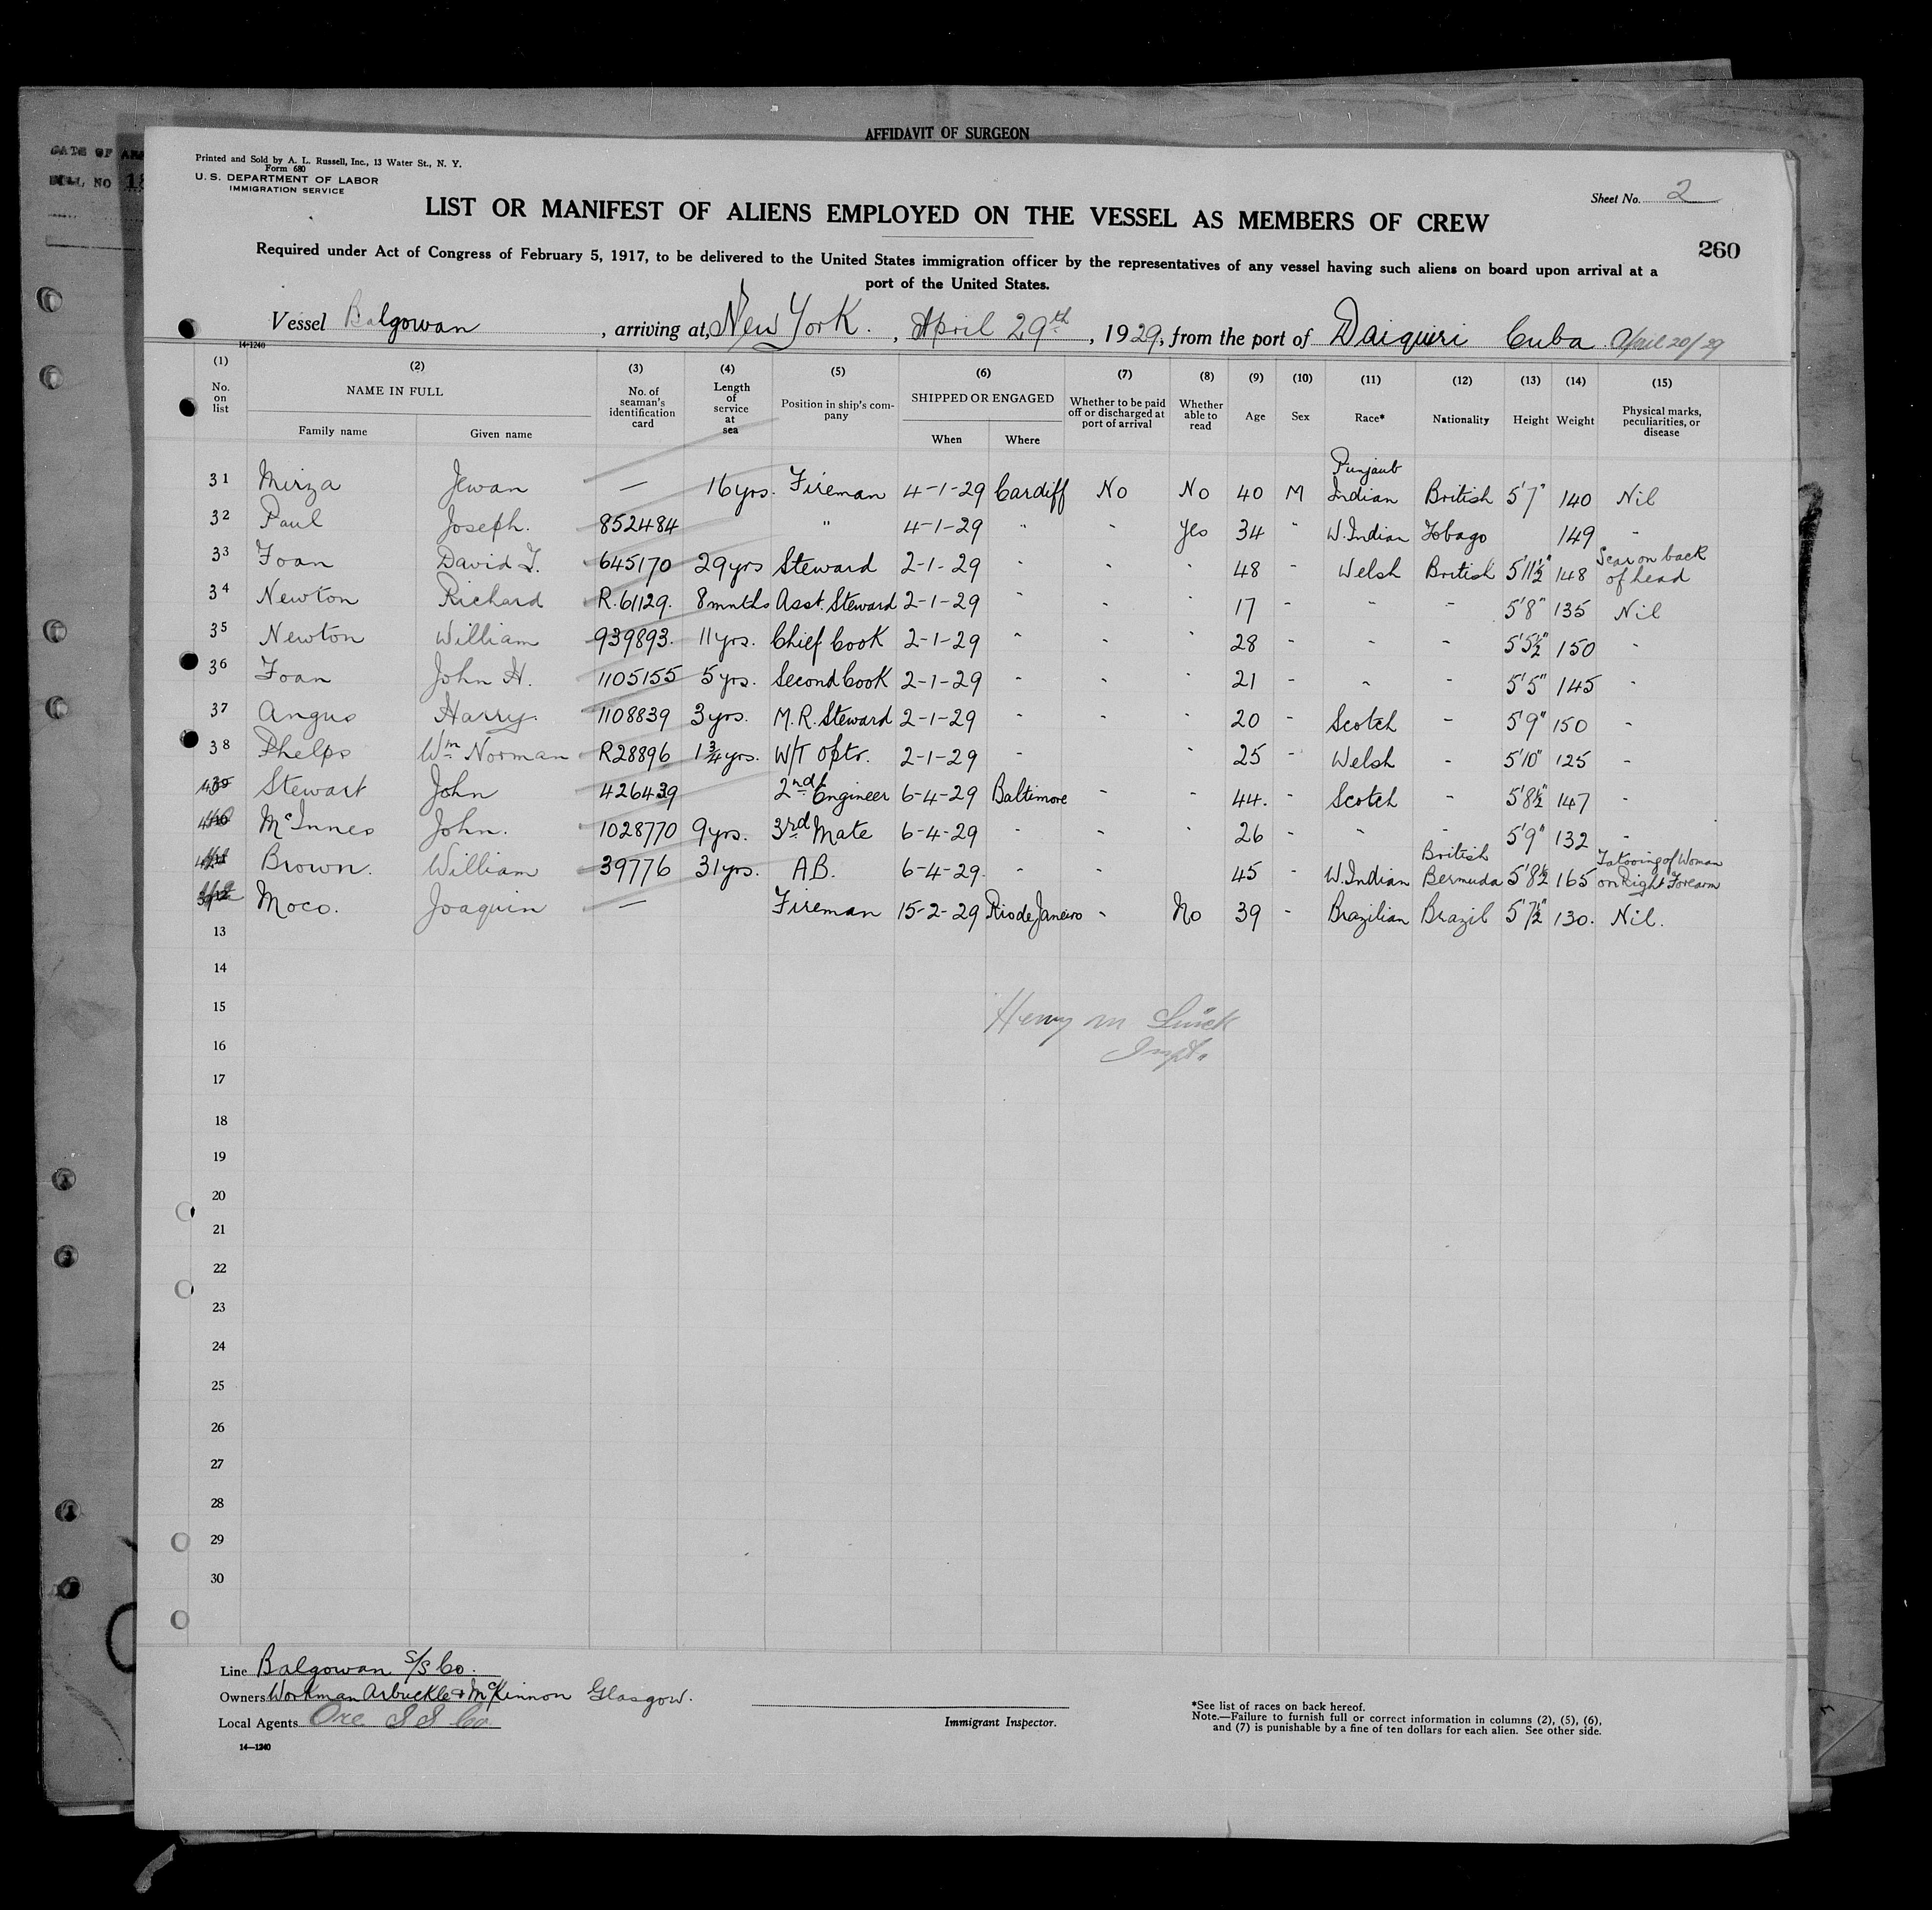 AFFIDAVIT OF SURGEON
DATE OF
ROLL NO
Printed and Sold by A. L. Russell, Inc., 13 Water St., N. Y.
Form 680
U. S. DEPARTMENT OF LABOR
IMMIGRATION SERVICE
Sheet No. 2
LIST OR MANIFEST OF ALIENS EMPLOYED ON THE VESSEL AS MEMBERS OF CREW
260
Required under Act of Congress of February 5, 1917, to be delivered to the United States immigration officer by the representatives of any vessel having such aliens on board upon arrival at a
port of the United States.
Vessel Balgowan, arriving at, New York., April 29th, 1929, from the port of Daiquiri Cuba April 20/29
14-1240
(1) (2) (3) (4) (5) (6) (7) (8) (9) (10) (11) (12) (13) (14) (15)
No. on list NAME IN FULL Family name Given name No. of seaman's identification card Length of service at sea Position in ship's company SHIPPED OR ENGAGED When Where Whether to be paid off or discharged at port of arrival Whether able to read Age Sex Race* Nationality Height Weight Physical marks, peculiarities, or disease
31 Mirza Jewan — 16 yrs. Fireman 4-1-29 Cardiff No No 40 M Punjaub Indian British 5'7" 140 Nil
32 Paul Joseph. 852484 " 4-1-29 " " Yes 34 " W. Indian Tobago 149 "
33 Foan David T. 645170 29 yrs Steward 2-1-29 " " " 48 " Welsh British 5'11½" 148 Scar on back of head
34 Newton Richard R.61129. 8 mnths Asst. Steward 2-1-29 " " " 17 " " " 5'8" 135 Nil
35 Newton William 939893. 11 yrs. Chief Cook 2-1-29 " " " 28 " " " 5'5½" 150 "
36 Foan John H. 1105155 5 yrs. Second Cook 2-1-29 " " " 21 " " " 5'5" 145 "
37 Angus Harry. 1108839 3 yrs. M.R. Steward 2-1-29 " " " 20 " Scotch " 5'9" 150 "
38 Phelps Wm Norman R28896 1¾ yrs. W/T Optr. 2-1-29 " " 25 " Welsh " 5'10" 125 "
Stewart John 426439 2nd Engineer 6-4-29 Baltimore " " 44. " Scotch " 5'8½" 147 "
McInnes John. 1028770 9 yrs. 3rd Mate 6-4-29 " " " 26 " " " 5'9" 132 "
Brown. William 39776 31 yrs. A.B. 6-4-29. " " 45 " W. Indian British Bermuda 5'8½ 165 Tatooing of Woman on Right Forearm
Moco. Joaquin — Fireman 15-2-29 Rio de Janeiro " No 39 " Brazilian Brazil 5'7½" 130. Nil.
13
14
15
16
17
18
19
20
21
22
23
24
25
26
27
28
29
30
Henry M
Line Balgowan S/S Co.
Owners Workman Arbuckle & McKinnon Glasgow.
Local Agents Ore S S Co.
Immigrant Inspector.
*See list of races on back hereof.
Note.—Failure to furnish full or correct information in columns (2), (5), (6),
and (7) is punishable by a fine of ten dollars for each alien. See other side.
14—1240